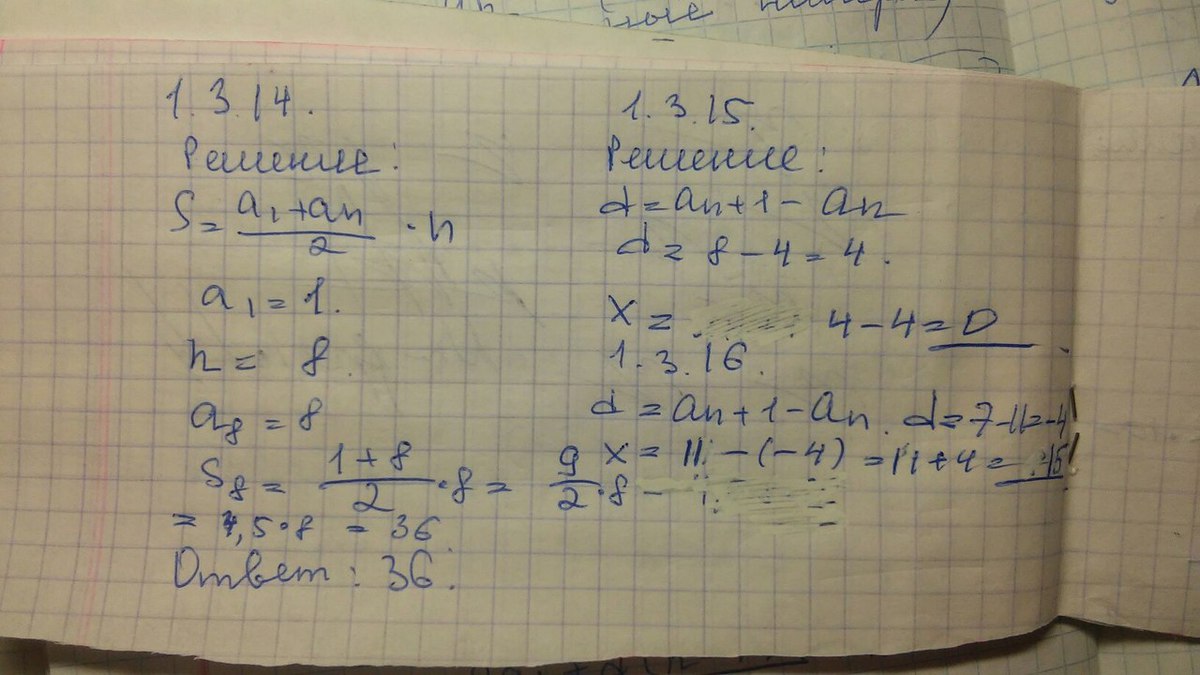 1.3.14.
Решение:
S = (a₁+aₙ)/2 · n
a₁ = 1.
n = 8.
a₈ = 8
S₈ = (1+8)/2 · 8 = 9/2 · 8 =
= 4,5 · 8 = 36.
Ответ: 36.
1.3.15.
Решение:
d = an+1 - an
d = 8 - 4 = 4.
x = 4 - 4 = 0
1.3.16.
d = an+1 - an. d = 7 - 11 = -4
x = 11 - (-4) = 11 + 4 = 15